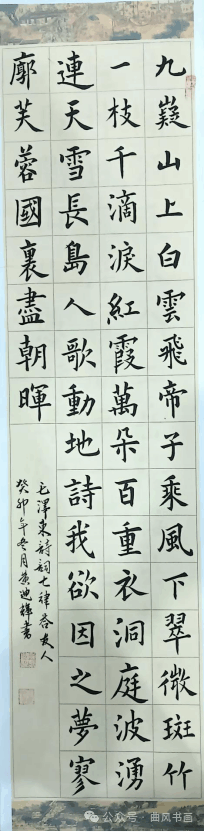 九嶷山上白雲飛帝子乘風下翠微斑竹
一枝千滴淚紅霞萬朵百重衣洞庭波湧
連天雪長島人歌動地詩我欲因之夢寥
廓芙蓉國裏盡朝暉
毛澤東詩詞七律答友人
癸卯年冬月黄迪書
公众号·曲风书画